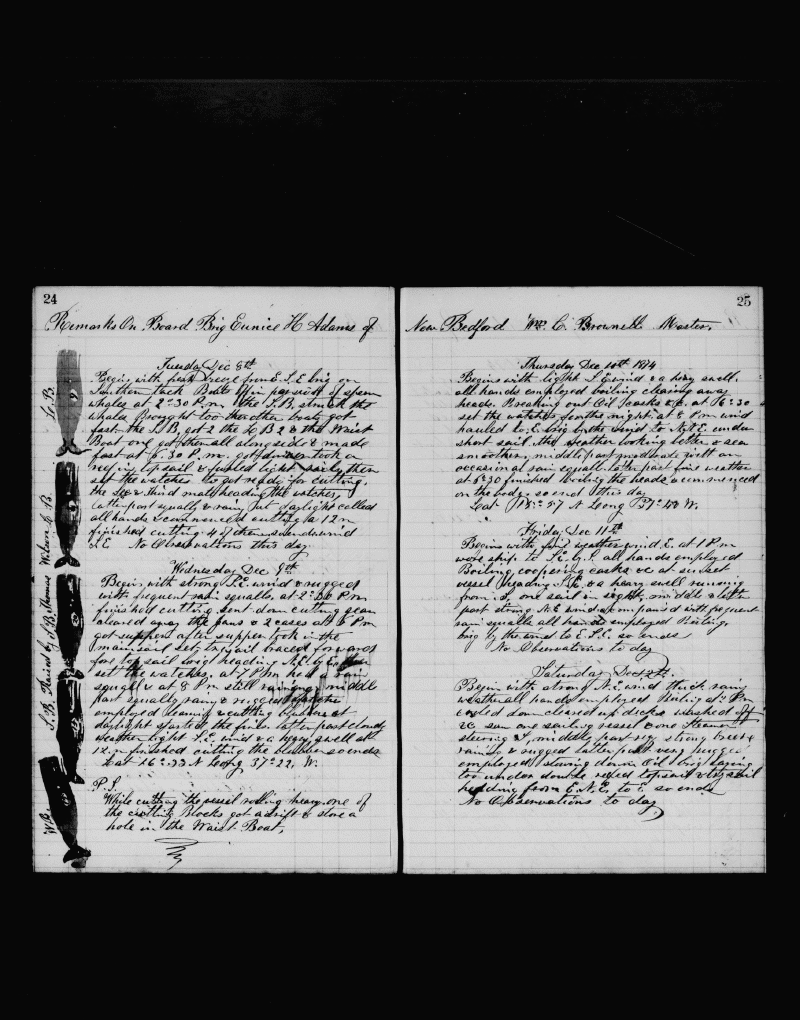 24
Remarks On Board Brig Eunice H Adams of
Tuesday Dec 8th
Begins with fresh breeze from E.S.E brig on
Southern tack Boats off in pursuit of sperm
whales at 2-30 P.m the S.B. struck the
whales Brought too the other boats got
fast the S.B. got 2 the L B 2 & the Waist
Boat one got them all alongside & made
fast at 6.30 P.m. got dinner took a
reef in topsail & furled light sails then
set the watches to get ready for cutting.
the 2nd & third mate heading the watches,
latter part squally & rain, at daylight called
all hands & commenced cutting at 12 m
finished cutting 4 of them wind
S.E. No Observations this day
Wednesday Dec 9th
Begins with strong S.E. wind & rugged
with frequent rain squalls. at 2-30 P.m
finished cutting. sent down cutting gear
cleared away the jaws & 2 cases at 5 P.m
got supper after supper took in the
mainsail set trysail braced forwards
fore top sail brig heading N.E. by E. then
set the watches, at 7 P.m had a rain
squall & at 8 P.m still raining, middle
part squally rain & rugged
employed leaning & cutting
daylight started the fires latter part cloudy
weather light S.E. wind & a heavy swell at
12 m finished cutting the blubber so ends
Lat 16=33 N Leong 37=22, W.
P.S.
While cutting the vessel rolling heavy. one of
the cutting blocks got adrift & stove a
hole in the Waist Boat,
L.B.
S.B. Raised by S.B. Thomas Wilson L.B.
W.B.
25
New Bedford Wm C. Brownell Master,
Thursday Dec 10th 1874
Begins with light S. wind & a heavy swell.
all hands employed boiling clearing away
heads. Breaking out Oil Casks &c. at 16=30
set the watches for the night. at 8 P.m wind
hauled to E. brig by the wind to N.N.E. under
short sail. the weather looking better & sea
smoother, middle part moderate with an
occasional rain squall. latter part fine weather
at 6=30 finished boiling the heads & commenced
on the body. so ends this day
Lat 15=57 N Leong 37=48 W.
Friday Dec 11th
Begins with fine weather wind E. at 1 P.m
wore ship to S.E. by S. all hands employed
Boiling, coopering casks &c at sunset
vessel heading N.E. & a heavy swell running
from S. one sail in sight, middle & latter
part strong N.E wind accompanied with frequent
rain squalls all hands employed Boiling,
brig by the wind to E.S.E. so ends
No Observations to day
Saturday Dec 12th
Begins with strong N.E. wind thick rainy
weather all hands employed Boiling at 2 P.m
cooled down cleared up decks washed off
&c saw one sailing vessel & one steamer
steering S, middle part very strong breeze
raining & rugged latter part very rugged
employed stowing down Oil brig laying
too under double reefed topsail & trysail
heading from E.N.E. to E. so ends
No Observations to day